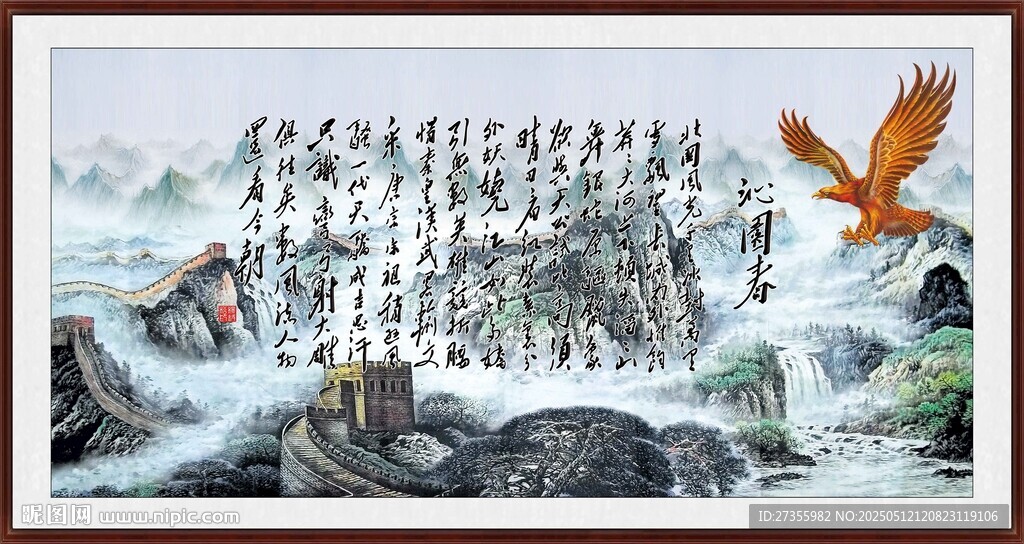 沁園春
北国風光千里冰封萬里
雪飘望长城内外惟餘
莽々大河上下頓失滔々山
舞銀蛇原驅臘象
欲與天公試比高須
晴日看红装素裹分
外妖娆江山如此多嬌
引無數英雄競折腰
惜秦皇漢武略輸文
采唐宗宋祖稍遜風
騷一代天驕成吉思汗
只識彎弓射大雕
俱往矣數風流人物
還看今朝
昵图网 www.nipic.com
ID:27355982 NO:20250512120823119106